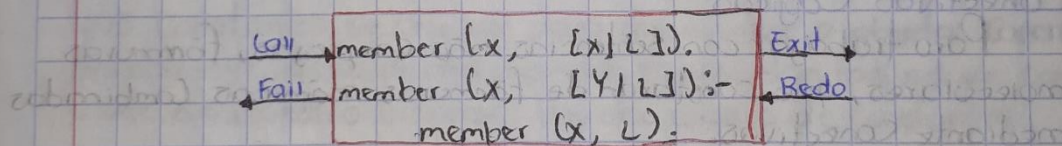 Call member (x, [x|L]). Exit
Fail member (x, [Y|L]):- Redo
member (x, L).